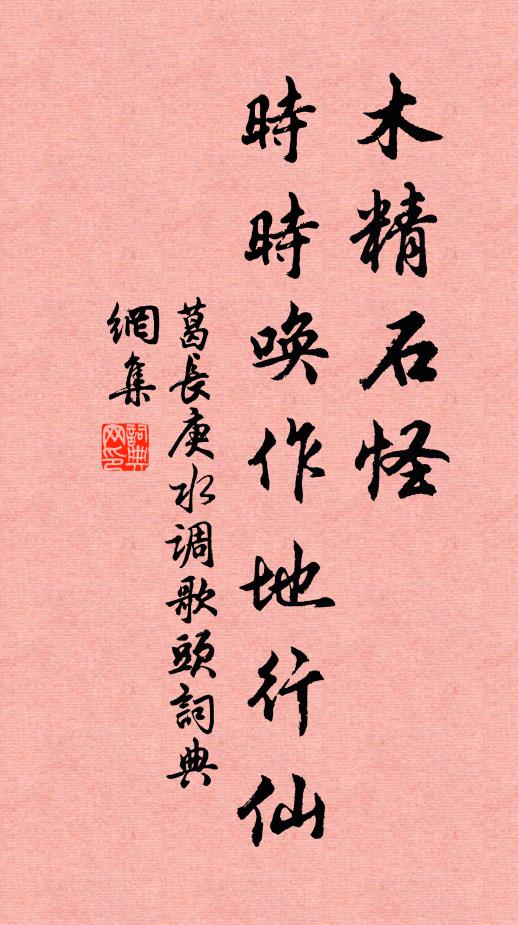 木精石怪
時時唤作地行仙
葛長庚水调歌頭詞典
網集
詞典網印